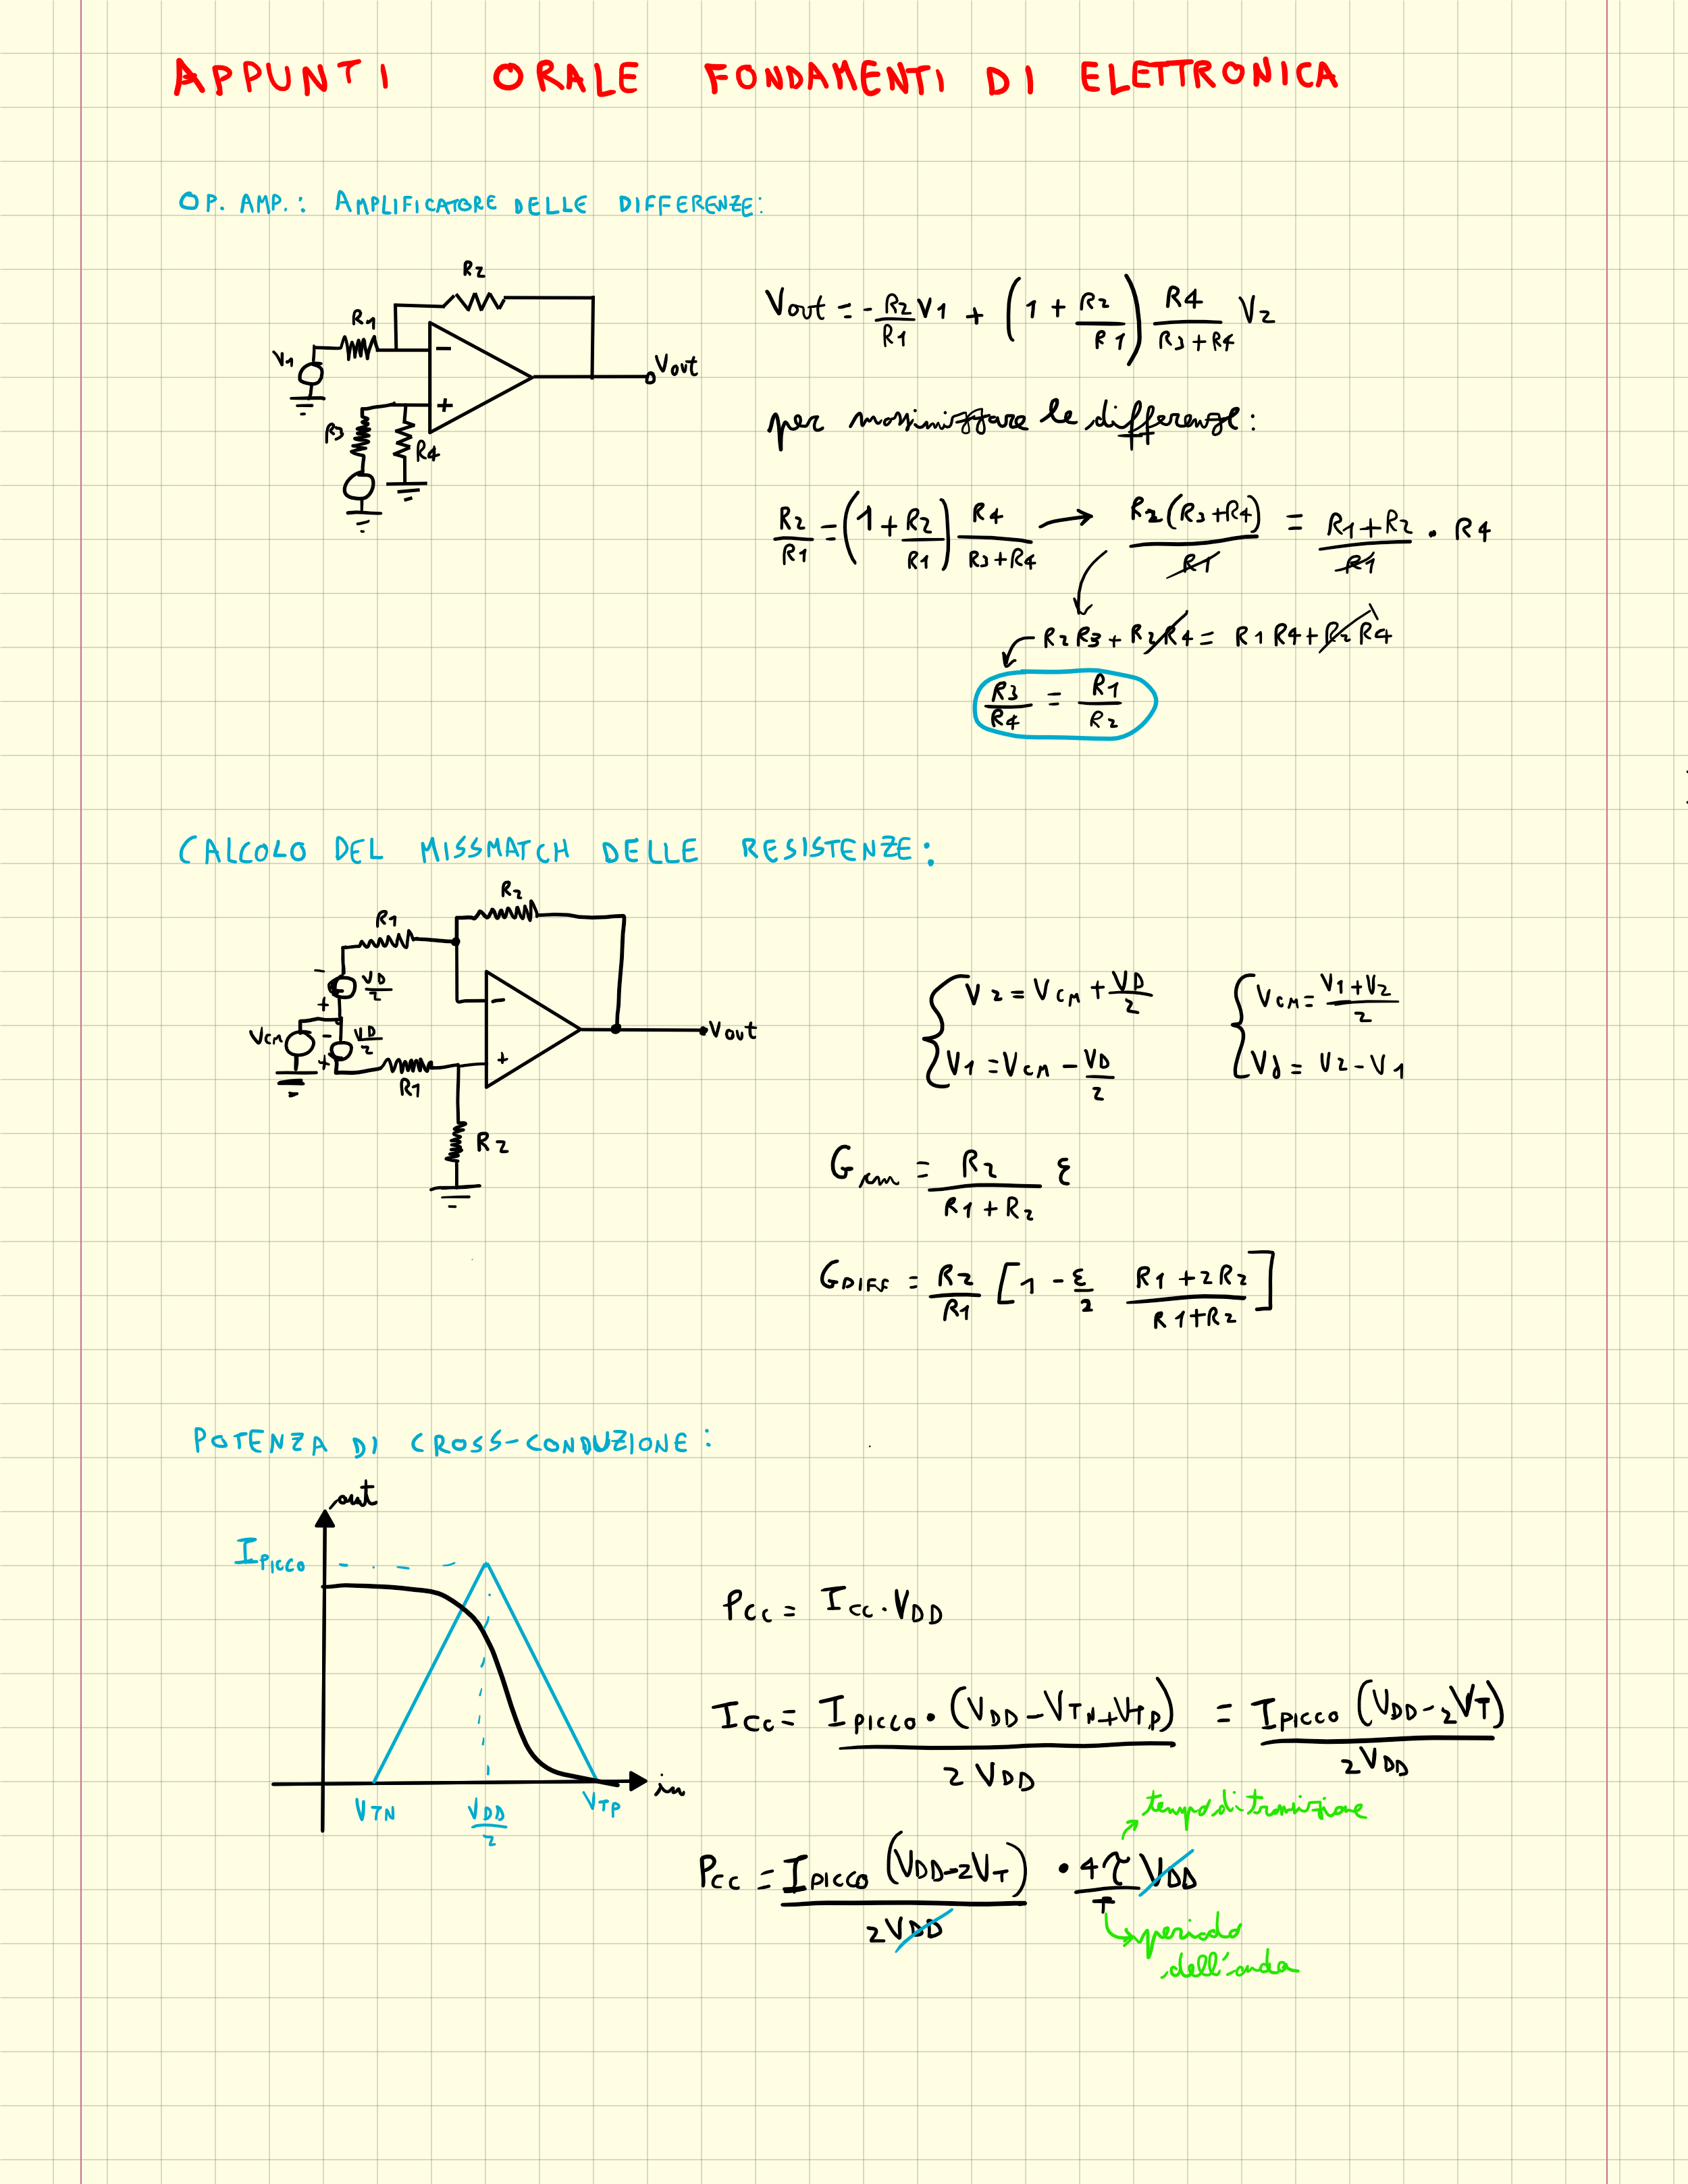 APPUNTI ORALE FONDAMENTI DI ELETTRONICA
OP. AMP.: AMPLIFICATORE DELLE DIFFERENZE:
R2
R1
V1
-
+
Vout
R3
R4
Vout = -R2/R1 V1 + (1 + R2/R1) R4/(R3+R4) V2
per massimizzare le differenze:
R2/R1 = (1+R2/R1) R4/(R3+R4) → R2(R3+R4)/R1 = (R1+R2)/R1 · R4
R2R3 + R2R4 = R1R4 + R2R4
R3/R4 = R1/R2
CALCOLO DEL MISSMATCH DELLE RESISTENZE:
R2
R1
-
VD/2
+
VCM
-
VD/2
+
R1
-
+
Vout
R2
V2 = VCM + VD/2
V1 = VCM - VD/2
VCM = (V1+V2)/2
Vd = V2 - V1
Gcm = R2/(R1+R2) ε
GDIFF = R2/R1 [1 - ε/2 (R1+2R2)/(R1+R2)]
POTENZA DI CROSS-CONDUZIONE:
out
IPICCO
in
VTN
VDD/2
VTP
PCC = ICC · VDD
ICC = IPICCO · (VDD-VTN+VTP)/2VDD = IPICCO (VDD-2VT)/2VDD
tempo di transizione
PCC = IPICCO (VDD-2VT)/2VDD · 4τ/T VDD
periodo
dell'onda